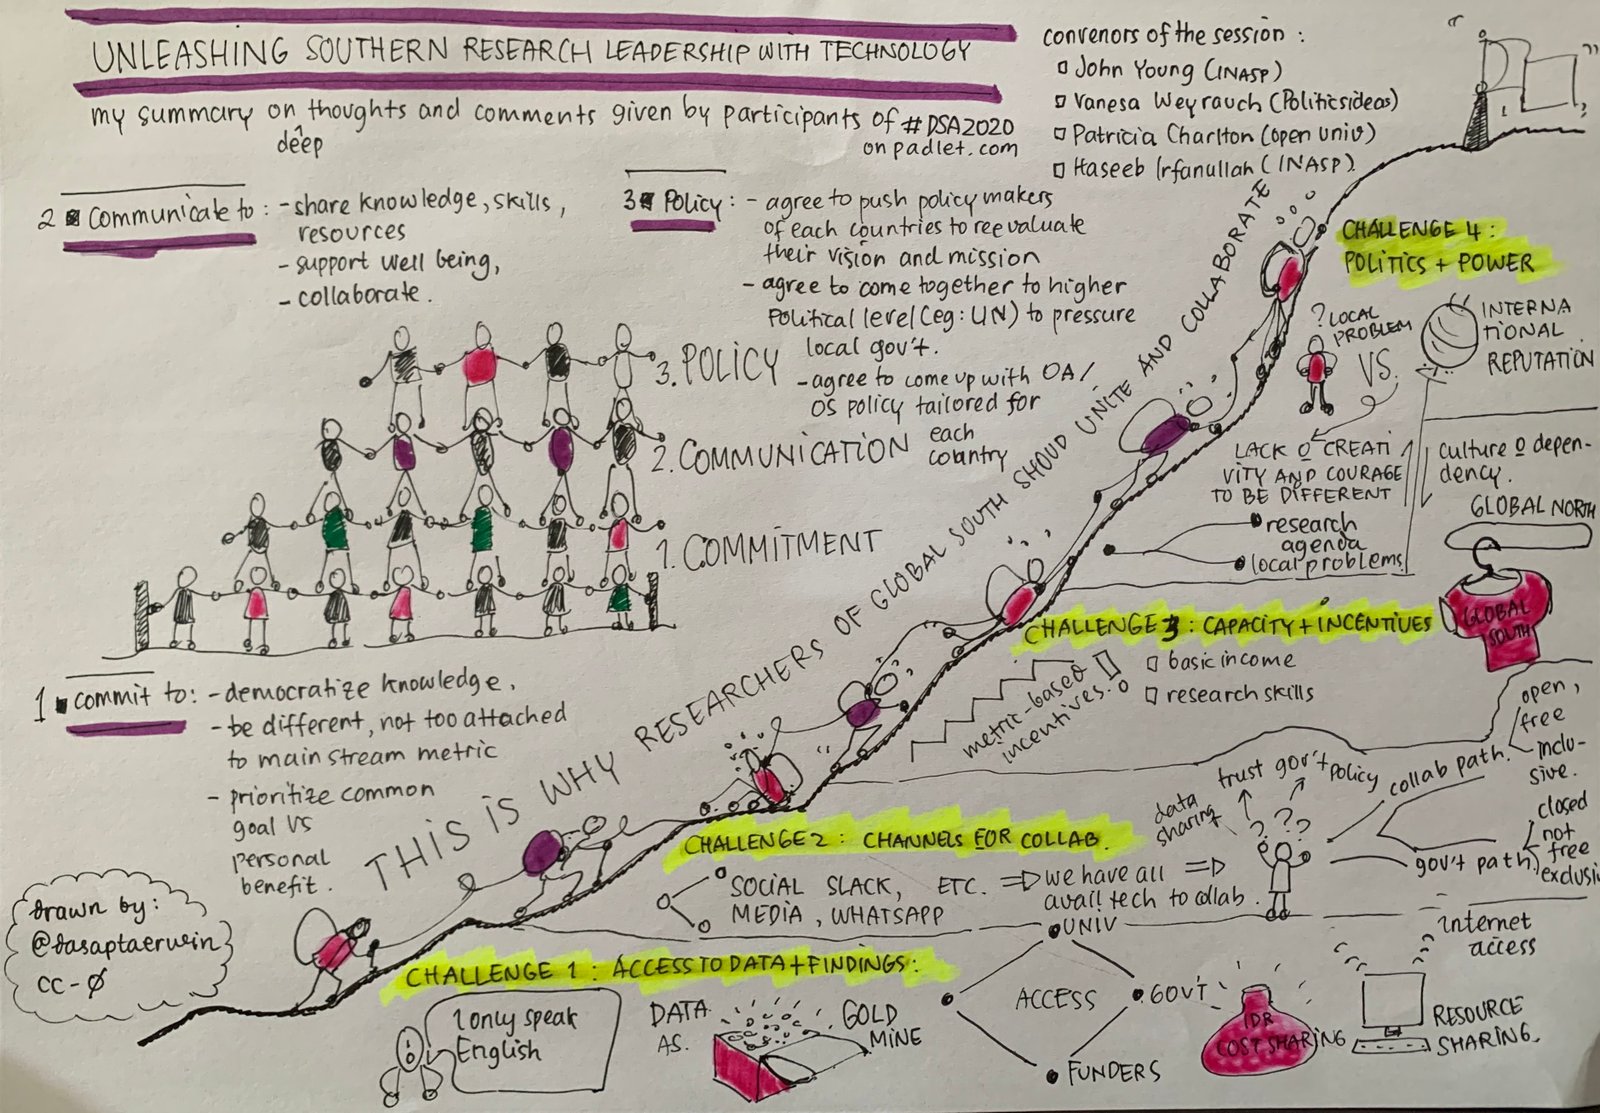 UNLEASHING SOUTHERN RESEARCH LEADERSHIP WITH TECHNOLOGY
my summary on thoughts and comments given by participants of #DSA2020
deep
on padlet.com
convenors of the session :
John Young (INASP)
Vanesa Weyrauch (Politicsideas)
Patricia Charlton (open univ)
Haseeb Irfanullah (INASP).
2 Communicate to : - share knowledge, skills,
resources
- support well being,
- collaborate.
3 Policy : - agree to push policy makers
of each countries to reevaluate
their vision and mission
- agree to come together to higher
Political level (eg: UN) to pressure
local gov't.
- agree to come up with OA/
OS policy tailored for
each
country
3. POLICY
2. COMMUNICATION
1. COMMITMENT
1 commit to: - democratize knowledge,
- be different, not too attached
to main stream metric
- prioritize common
goal vs
personal
benefit.
THIS IS WHY RESEARCHERS OF GLOBAL SOUTH SHOUD UNITE AND COLLABORATE
CHALLENGE 4 :
POLITICS + POWER
? LOCAL
PROBLEM
VS.
INTERNA
TIONAL
REPUTATION
LACK O CREATI
VITY AND COURAGE
TO BE DIFFERENT
culture o depen-
dency.
research
agenda
local problems
GLOBAL NORTH
GLOBAL
SOUTH
CHALLENGE 3 : CAPACITY + INCENTIVES
metric-based
incentives!
basic income
research skills
CHALLENGE 2 : CHANNELS FOR COLLAB.
SOCIAL SLACK, ETC.
MEDIA, WHATSAPP
we have all
avail tech to collab.
data
sharing
trust gov't policy
? ? ?
collab path.
open,
free
inclu-
sive.
gov't path.
closed
not
free
exclusi
CHALLENGE 1 : ACCESS TO DATA + FINDINGS :
I only speak
English
DATA
AS.
GOLD
MINE
UNIV
ACCESS
GOV'T
FUNDERS
IDR
COST SHARING
internet
access
RESOURCE
SHARING.
drawn by:
@dasaptaerwin
CC-Ø